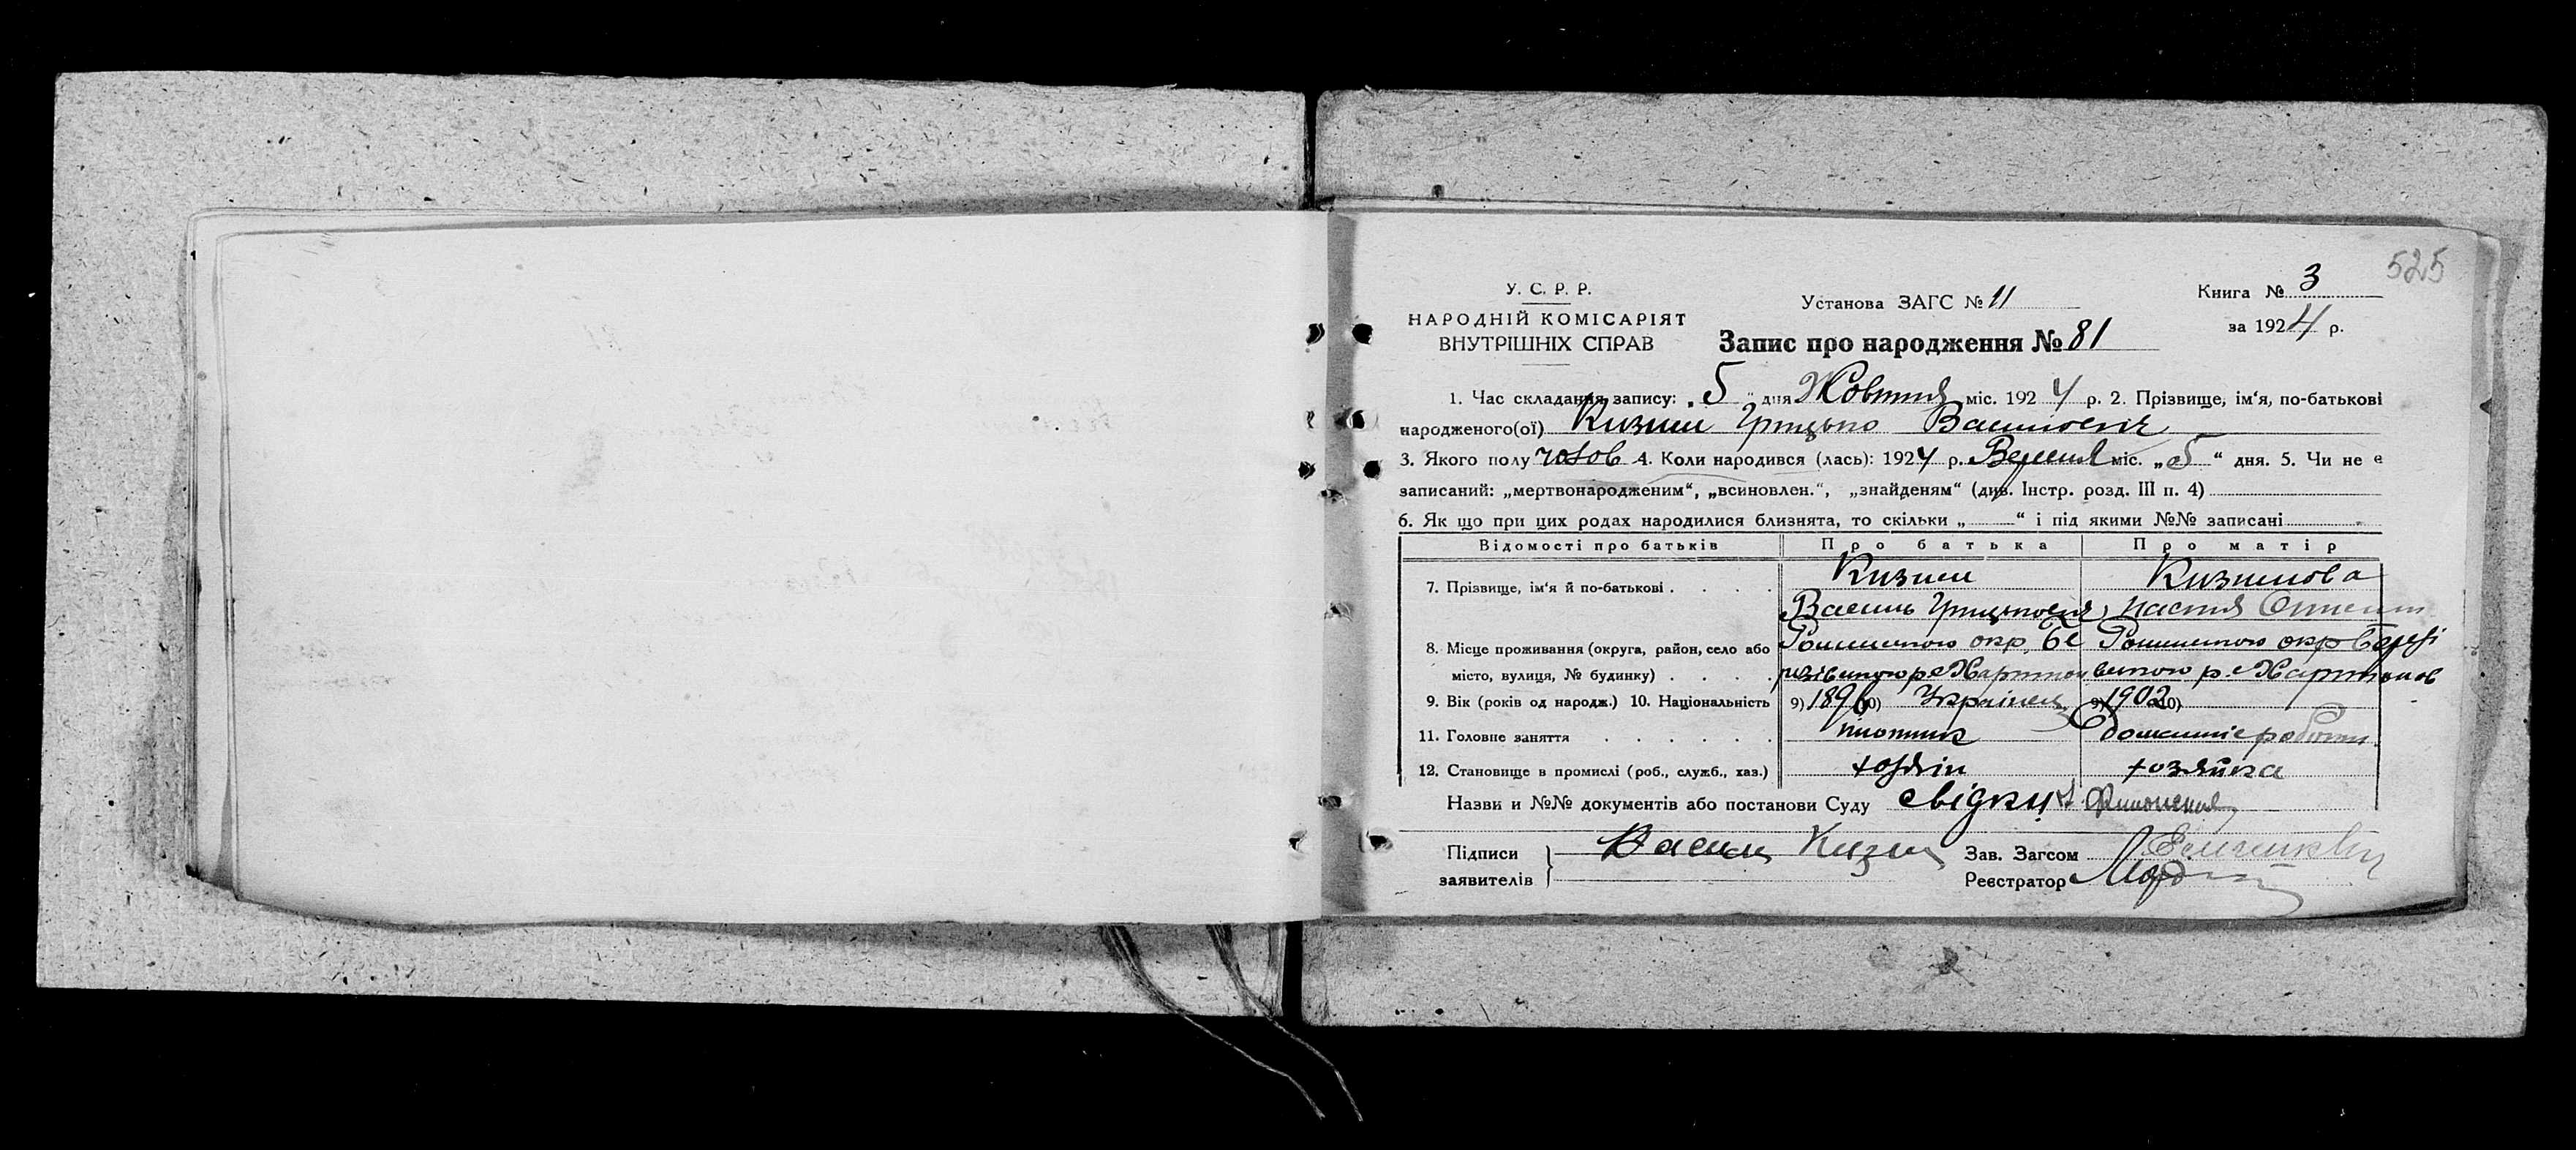 525
У. С. Р. Р.
НАРОДНІЙ КОМІСАРІЯТ
ВНУТРІШНІХ СПРАВ
Установа ЗАГС № 11
Книга № 3
за 1924 р.
Запис про народження № 81
1. Час складання запису: „5“ дня Жовтня міс. 1924 р. 2. Прізвище, ім‘я, по-батькові
народженого(ої) Кизим Грицько Васильович
3. Якого полу чолов 4. Коли народився (лась): 1924 р. Вересня міс. „5“ дня. 5. Чи не е
записаний: „мертвонародженим“, „всиновлен.“, „знайденям“ (див. Інстр. розд. III п. 4)
6. Як що при цих родах народилися близнята, то скільки „ “ і під якими №№ записані
Відомості про батьків Про батька Про матір
7. Прізвище, ім‘я й по-батькові Кизим Кизимова
Василь Грицькович Настя
8. Місце проживання (округа, район, село або окр, Бе окр Бере
місто, вулиця, № будинку)
9. Вік (років од народж.) 10. Національність 9) 1896 10) Українець 9) 1902 10)
11. Головне заняття плотник домашнє роботи
12. Становище в промислі (роб., служб., хаз.) хозяін хозяйка
Назви и №№ документів або постанови Суду свідки
Підписи
заявителів
Василь Кизим
Зав. Загсом
Реєстратор